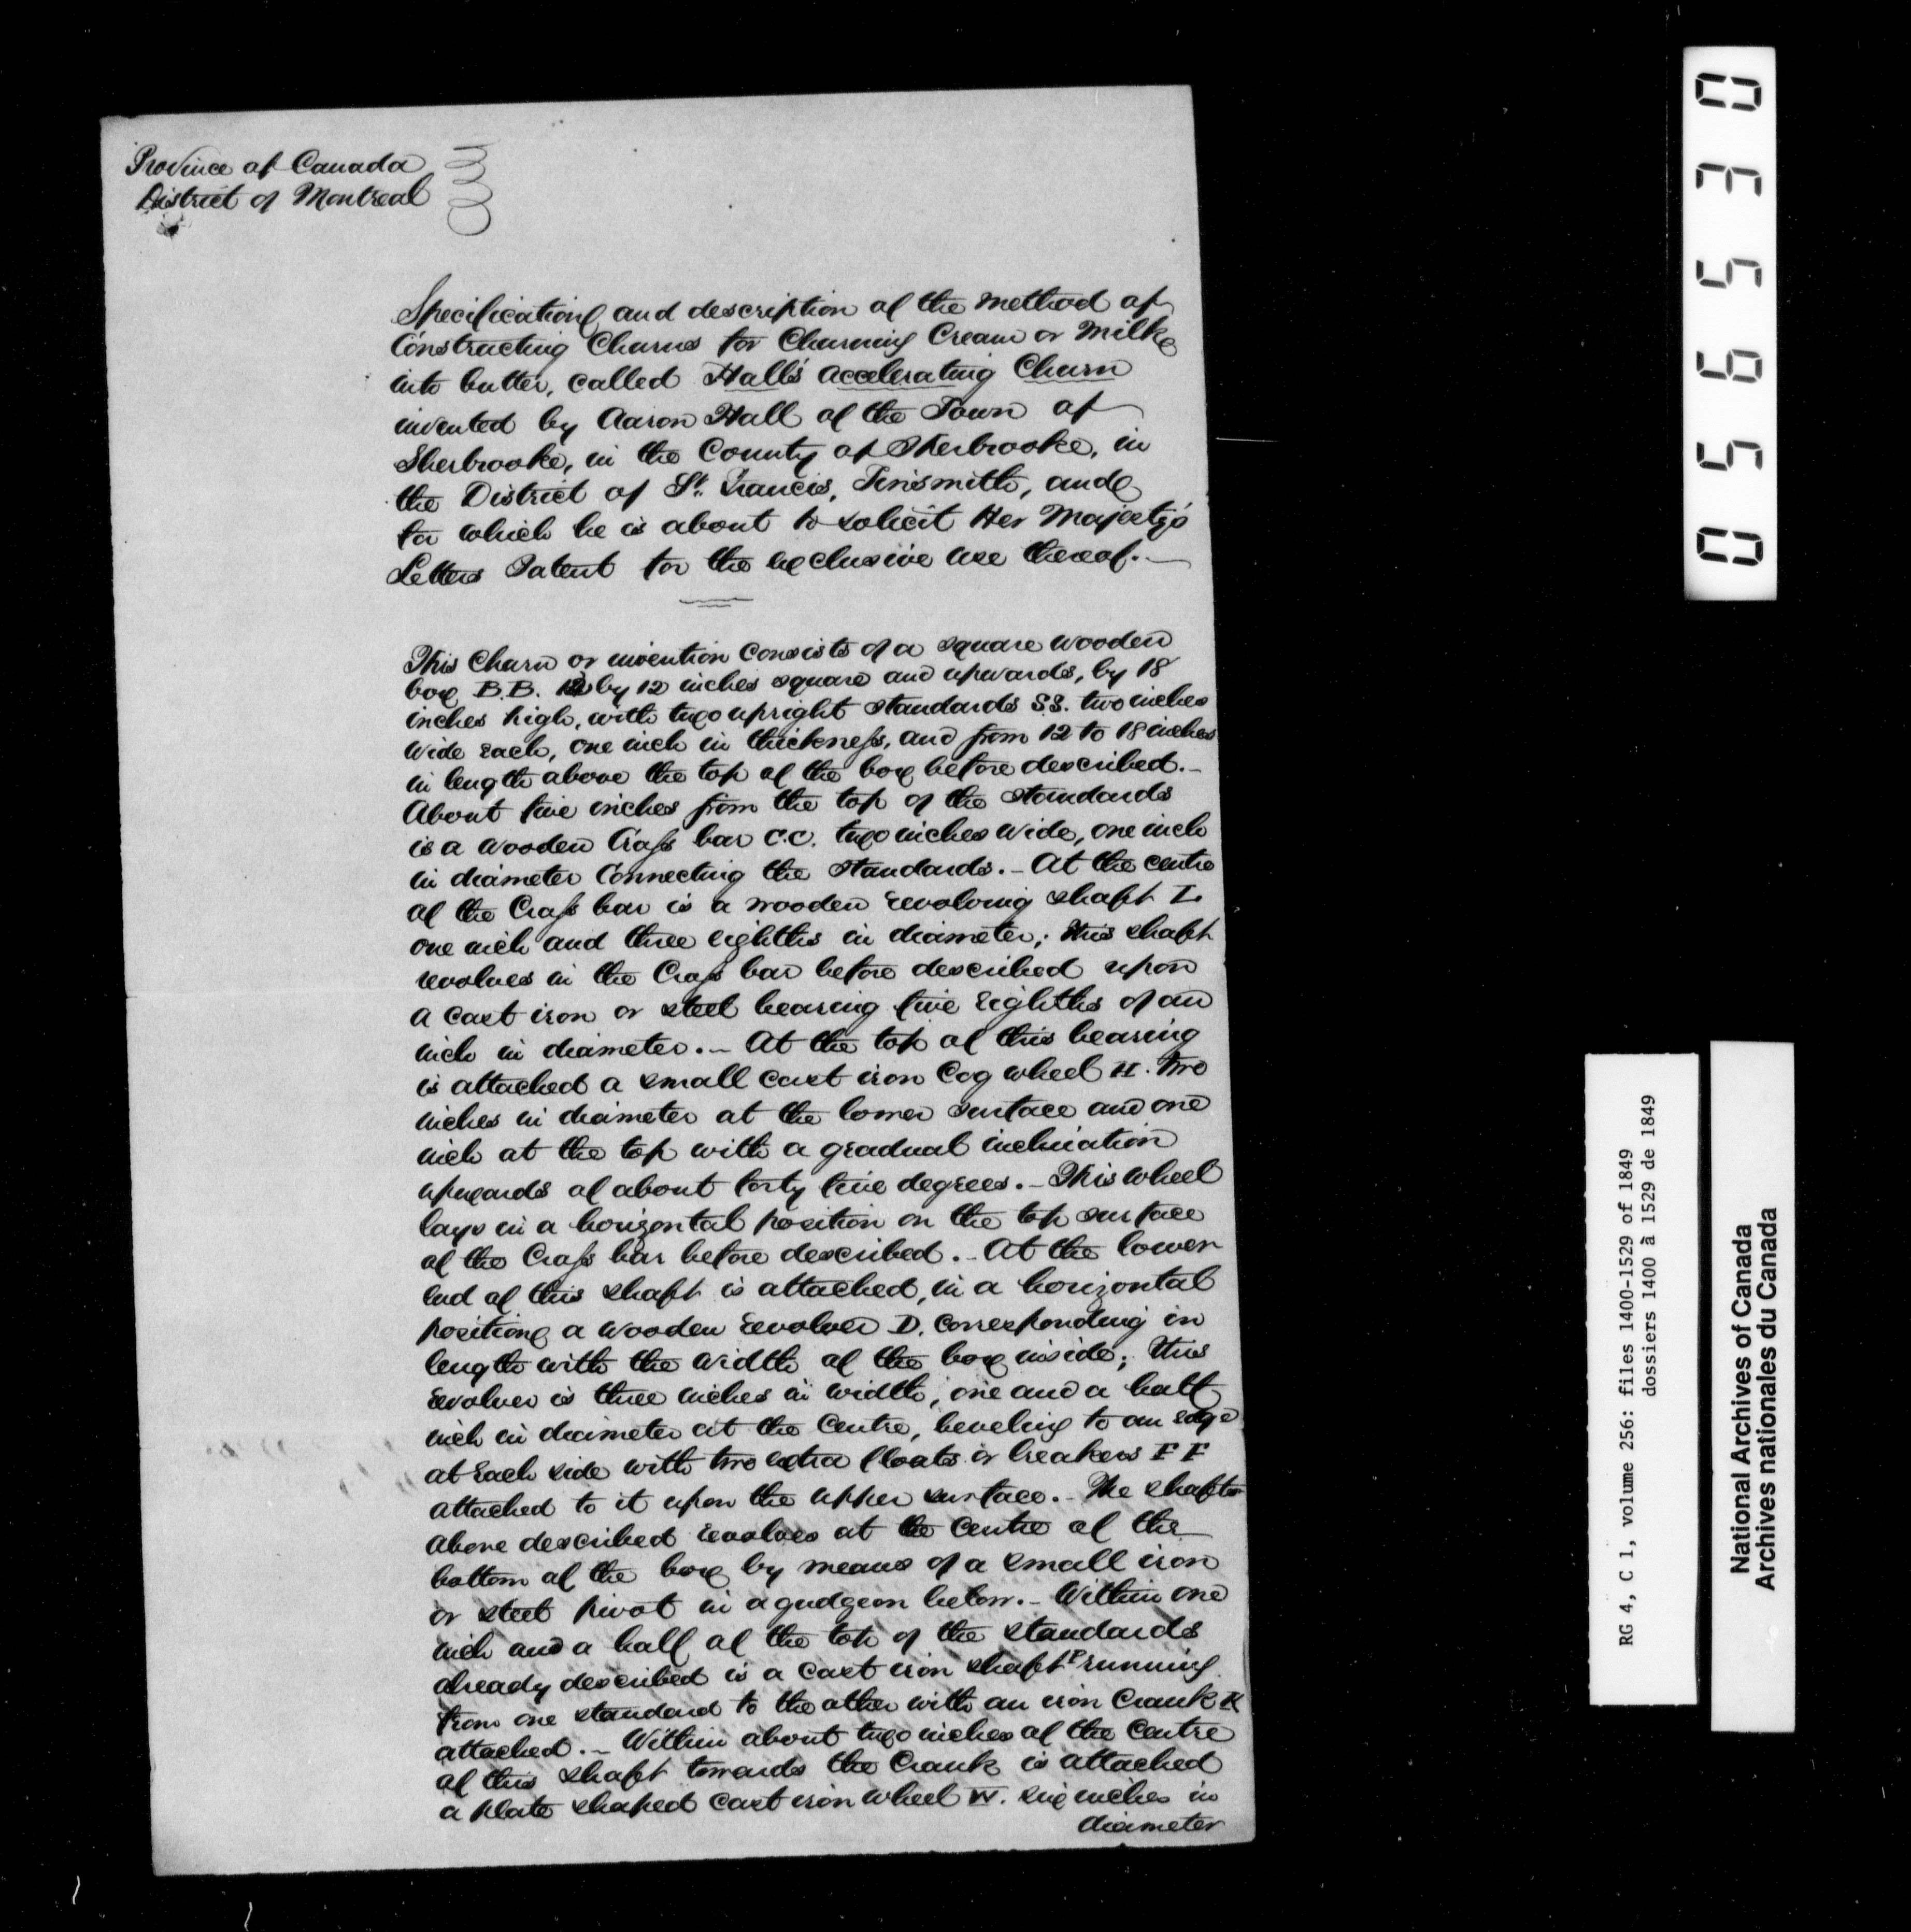 Province of Canada
District of Montreal
Specification and description of the method of
Constructing Churns for Churning Cream or Milk
into butter, called Hall's Accelerating Churn
invented by Aaron Hall of the Town of
Sherbrooke, in the County of Sherbrooke, in
the District of St. Francis, Tinsmith, and
for which he is about to solicit Her Majesty's
Letters Patent for the exclusive use thereof.-
This Churn or invention consists of a square wooden
box B.B. 12 by 12 inches square and upwards, by 18
inches high, with two upright standards S.S. two inches
wide each, one inch in thickness, and from 12 to 18 inches
in length above the top of the box before described.-
About five inches from the top of the standards
is a wooden Cross bar C.C. two inches wide, one inch
in diameter Connecting the standards.- At the centre
of the Cross bar is a wooden revolving shaft L
one inch and three eighths in diameter; this shaft
revolves in the Cross bar before described upon
a cast iron or steel bearing five eighths of an
inch in diameter.- At the top of this bearing
is attached a small cast iron Cog wheel H. two
inches in diameter at the lower surface and one
inch at the top with a gradual inclination
upwards of about forty five degrees.- This wheel
lays in a horizontal position on the top surface
of the Cross bar before described.- At the lower
end of this shaft is attached, in a horizontal
position a wooden revolver D. corresponding in
length with the width of the box inside; this
revolver is three inches in width, one and a half
inch in diameter at the Centre, beveling to an edge
at each side with two extra floats or breakers F F
attached to it upon the upper surface.- The shaft
above described revolves at the Centre of the
bottom of the box by means of a small iron
or steel pivot in a gudgeon below.- Within one
inch and a half of the top of the standards
already described is a cast iron shaft P running
from one standard to the other with an iron Crank K
attached.- Within about two inches of the Centre
of this shaft towards the Crank is attached
a plate shaped cast iron wheel W. six inches in
diameter
055530
RG 4, C 1, volume 256: files 1400-1529 of 1849
dossiers 1400 à 1529 de 1849
National Archives of Canada
Archives nationales du Canada